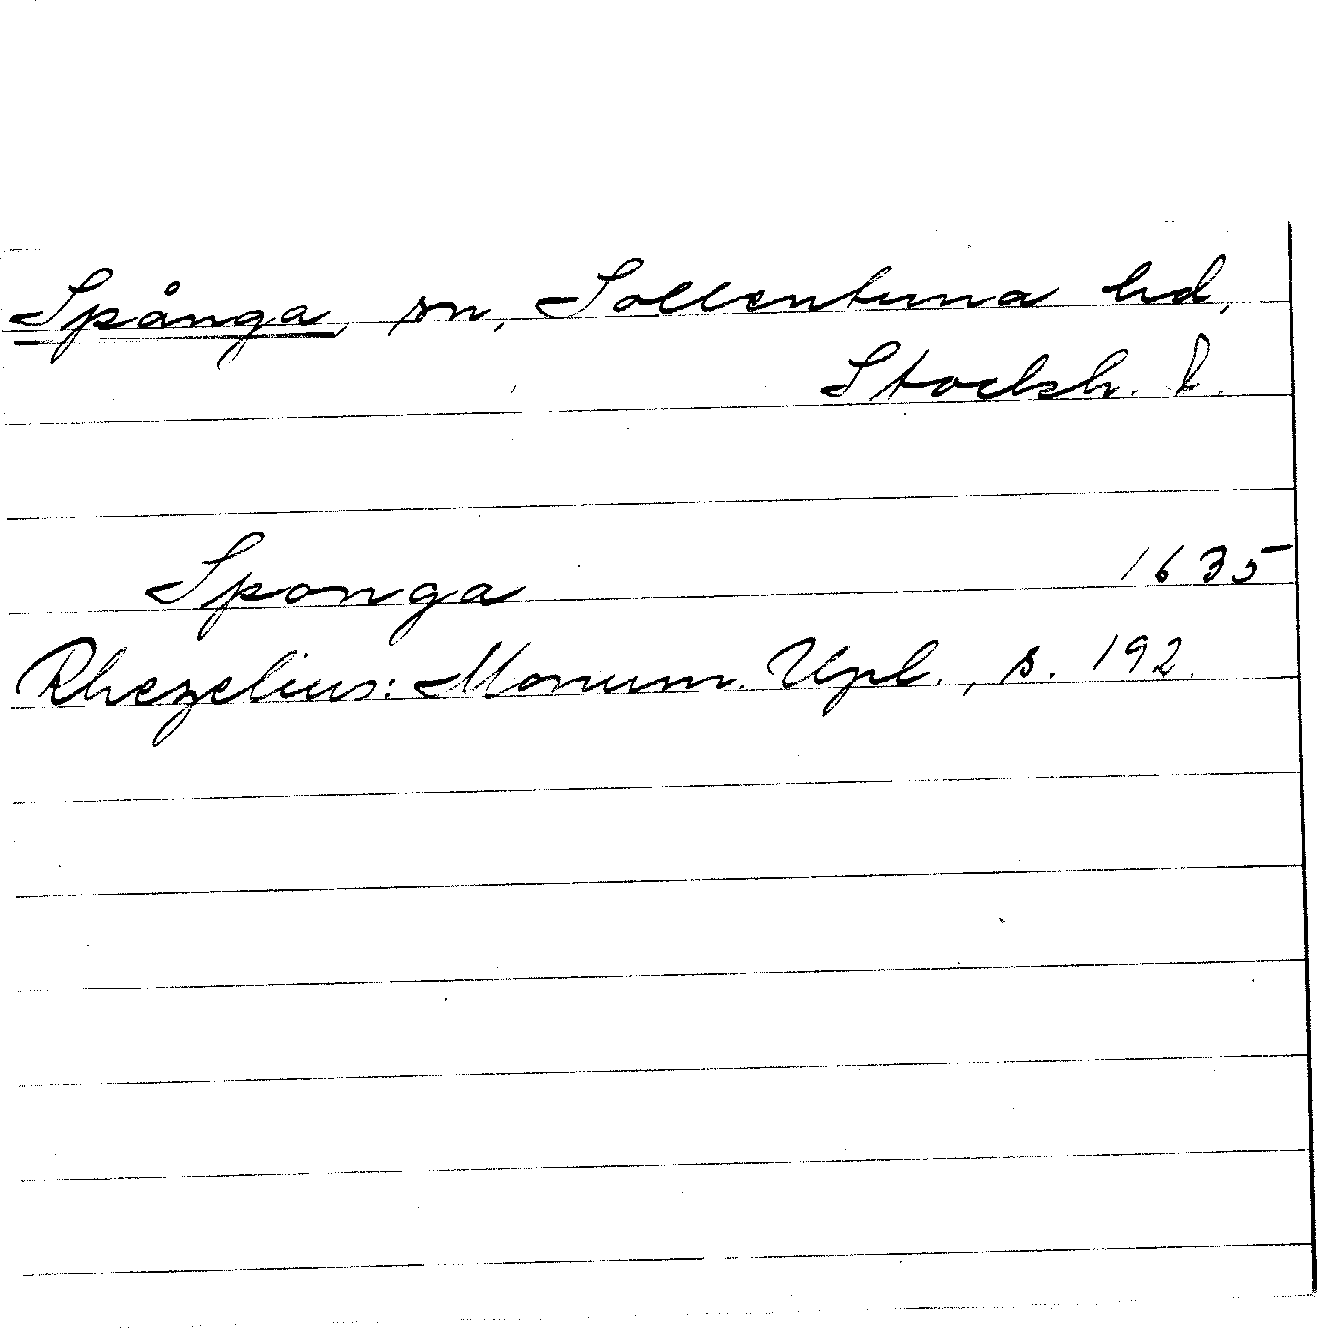 Spånga, sn, Sollentuna hd,
Stockh. l.
Sponga 1635
Rhezelius: Monum. Upl., s. 192.